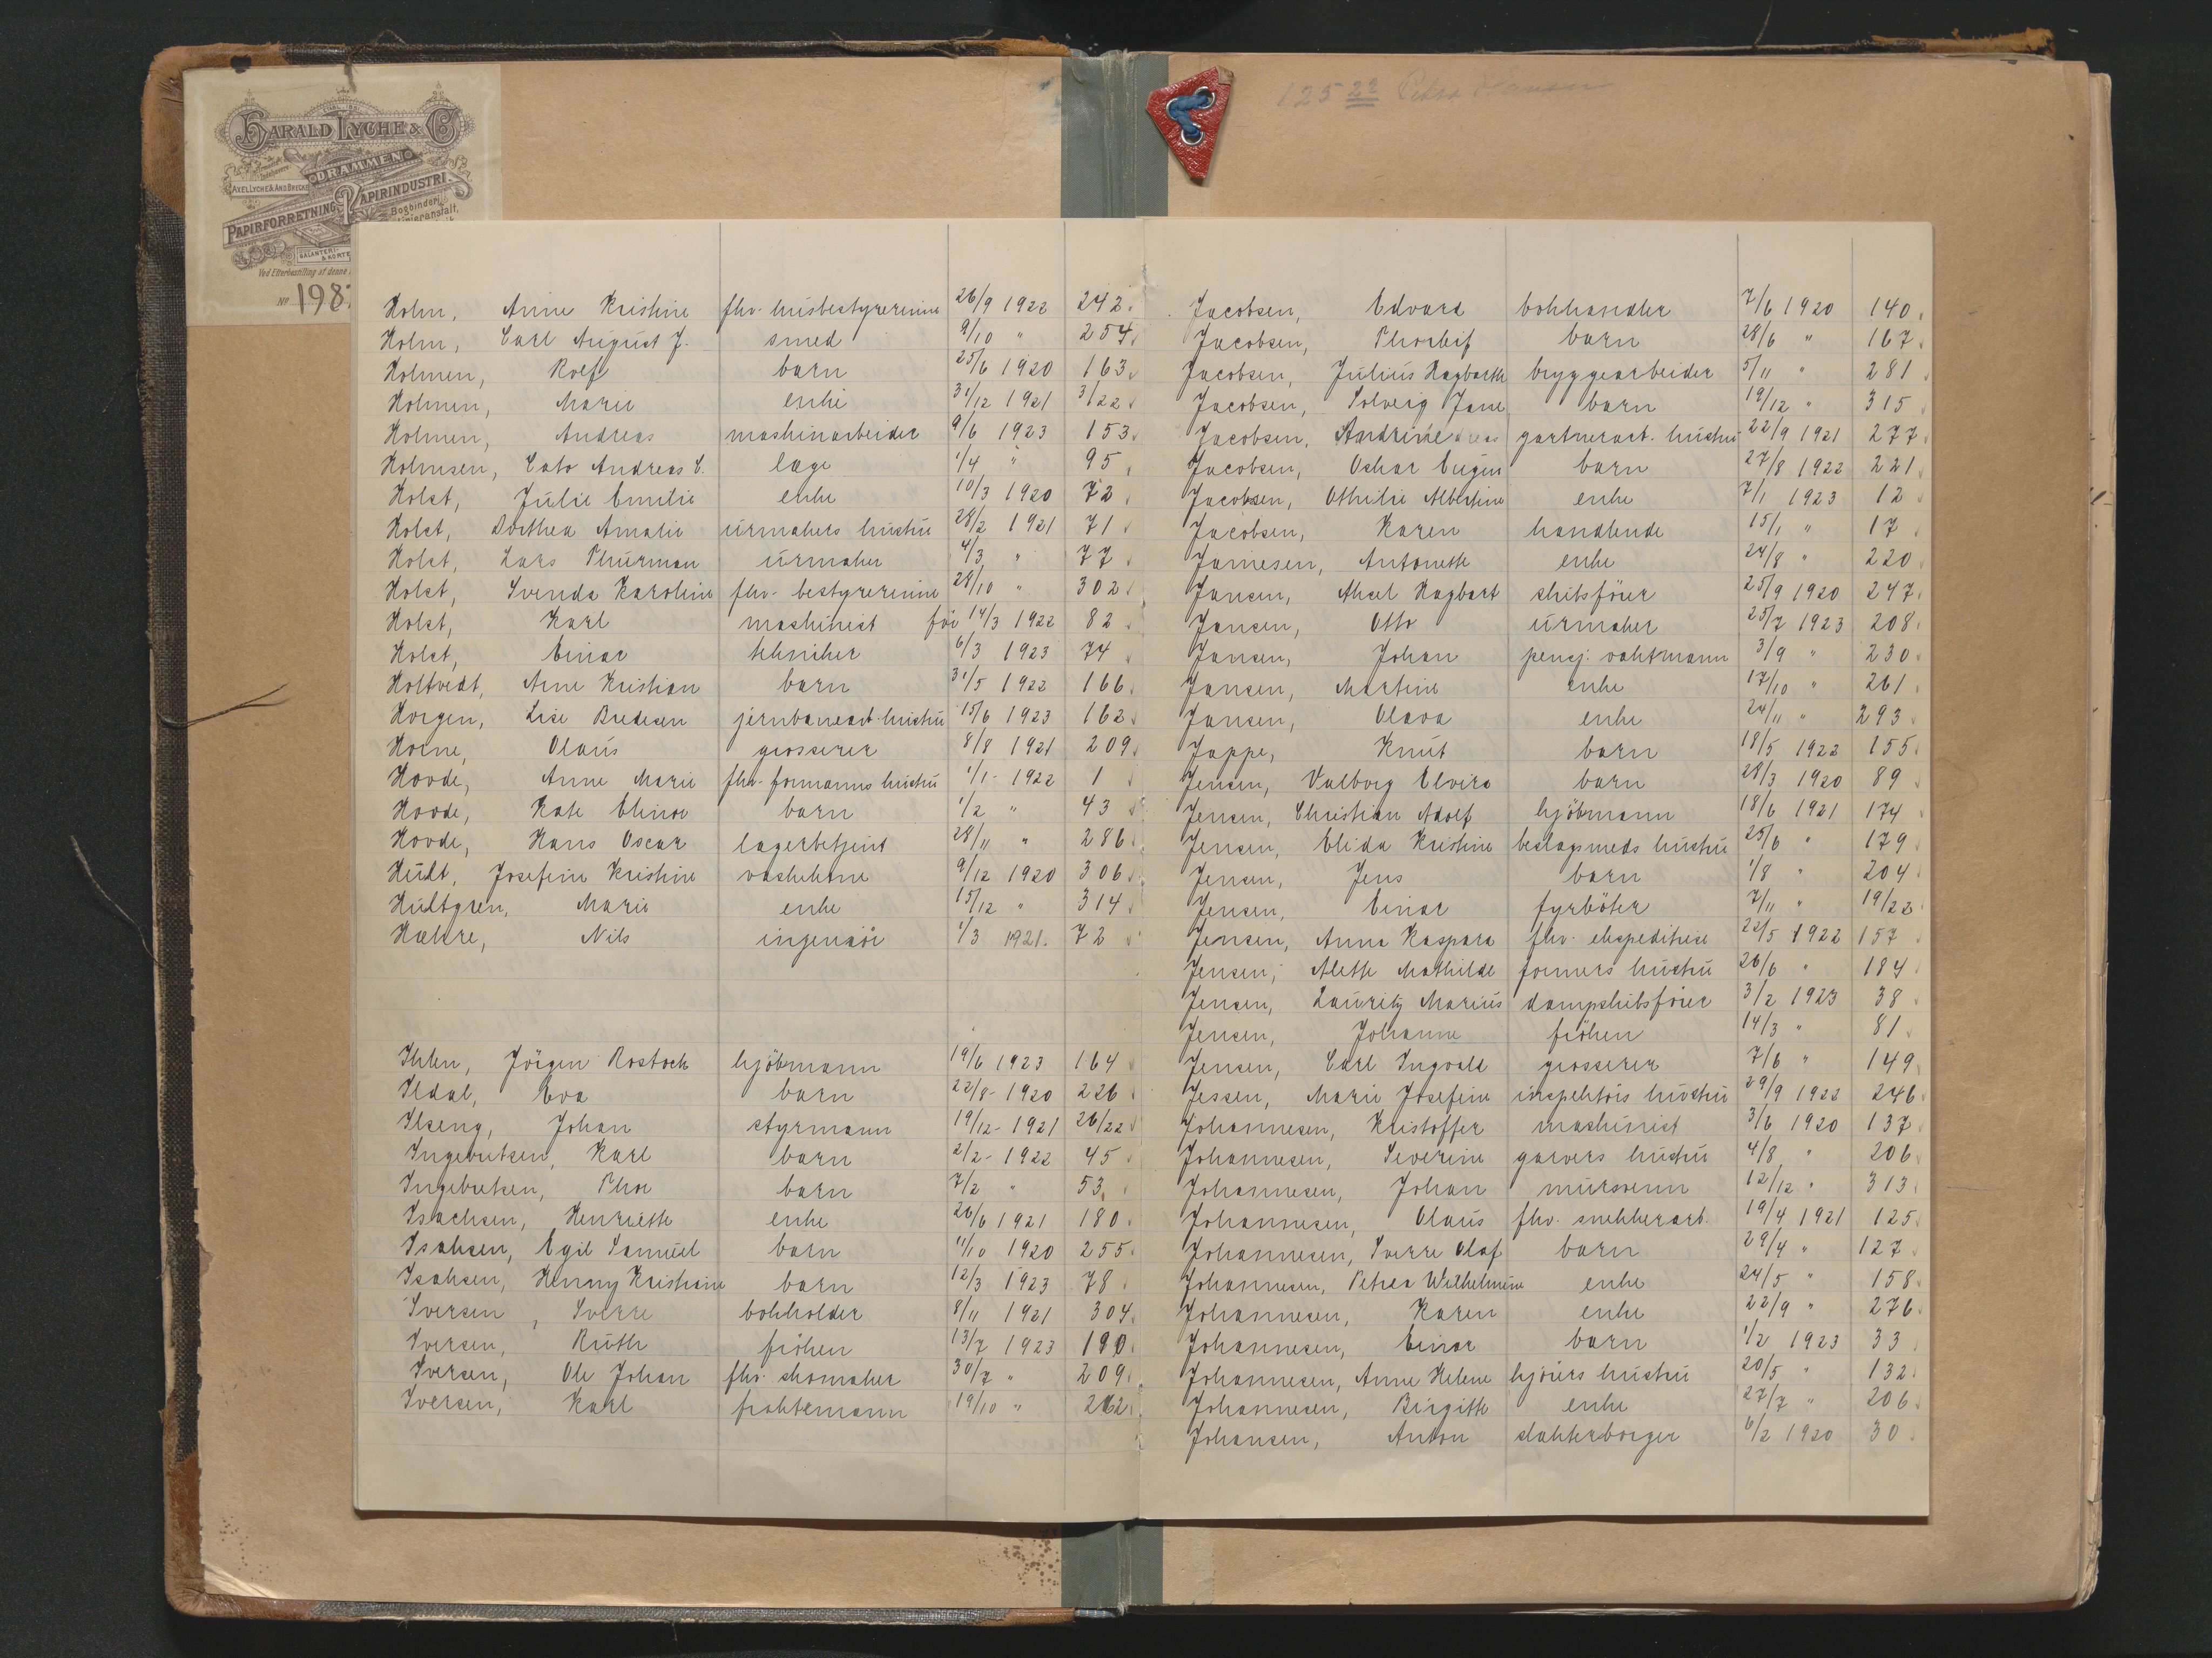 HARALD LYCHE & Co
DRAMMEN
AXEL LYCHE & AND. BRECKE
PAPIRFORRETNING PAPIRINDUSTRI.
Bogbinderi,
Linieranstalt,
Ved Efterbestilling af denne
No 198
125 22 Petra Hansen
Holm, Anne Kristine fhv. husbestyrerinne 26/9 1922 242.
Holm, Carl August J. smed 9/10 " 254.
Holmen, Rolf barn 25/6 1920 163.
Holmen, Marie enke 31/12 1921 3/22
Holmen, Andreas maskinarbeider 9/6 1923 153.
Holmsen, Cato Andreas C. læge 1/4 " 95.
Holst, Julie Emilie enke 10/3 1920 72.
Holst, Dorthea Amalie urmakers hustru 28/2 1921 71
Holst, Lars Thurman urmaker 4/3 " 77
Holst, Svenda Karoline fhv. bestyrerinne 28/10 " 302
Holst, Karl maskinist før 14/3 1922 82
Holst, Einar tekniker 6/3 1923 74
Holtvedt, Arne Kristian barn 31/5 1922 166.
Horgen, Lise Bredesen jernbanearb. hustru 15/6 1923 162
Horne, Olaus grosserer 8/8 1921 209.
Hovde, Anne Marie fhv. formanns hustru 1/1- 1922 1
Hovde, Kate Elinor barn 1/2 " 43
Hovde, Hans Oscar lagerbetjent 28/11 " 286
Hult, Josefine Kristine vaskekone 9/12 1920 306
Hultgren, Marie enke 15/12 " 314
Hæhre, Nils ingeniør 1/3 1921. 72
Ihlen, Jörgen Rostock kjöbmann 19/6 1923 164
Ildal, Eva barn 22/8- 1920 226
Ilseng, Johan styrmann 19/12- 1921 26/22
Ingebretsen, Karl barn 2/2- 1922 45
Ingebretsen, Thor barn 7/2 " 53.
Isachsen, Henriette enke 26/6 1921 180.
Isaksen, Egil Samuel barn 11/10 1920 255.
Isaksen, Henny Kristiane barn 12/3 1923 78
Iversen, Sverre bokholder 8/11 1921 304.
Iversen, Ruth fröken 13/7 1923 190.
Iversen, Ole Johan fhv. skomaker 30/7 " 209.
Iversen, Karl fraktemann 19/10 " 262
Jacobsen, Edvard bokhandler 7/6 1920 140.
Jacobsen, Thorleif barn 28/6 " 167.
Jacobsen, Julius Hagbarth bryggearbeider 5/11 " 281
Jacobsen, Solveig Jane barn 19/12 " 315
Jacobsen, Andrine gartnerarb. hustru 22/9 1921 277.
Jacobsen, Oskar Eugen barn 27/8 1922 221
Jacobsen, Othilie Albertine enke 7/1 1923 12
Jacobsen, Karen handlende 15/1 " 17
Jamesen, Antonette enke 24/8 " 220
Jansen, Aksel Hagbart skibsförer 25/9 1920 247.
Jansen, Otto urmaker 25/7 1923 208.
Jansen, Johan pensj. vaktmann 3/9 " 230
Jansen, Martine enke 17/10 " 261
Jansen, Olava enke 24/11 " 293
Jappe, Knut barn 18/5 1922 155.
Jensen, Valborg Elvira barn 28/3 1920 89
Jensen, Christian Adolf kjöbmann 18/6 1921 174
Jensen, Elida Kristine beslagsmeds hustru 25/6 " 179
Jensen, Jens barn 1/8 " 204
Jensen, Einar fyrböter 7/11 " 19/22
Jensen, Anna Kaspara fhv. ekspeditrise 22/5 1922 157
Jensen, Alette Mathilde formers hustru 26/6 " 184
Jensen, Lauritz Marius dampskibsförer 3/2 1923 38
Jensen, Johanne fröken 14/3 " 81
Jensen, Carl Ingvald grosserer 7/6 " 149
Jessen, Marie Josefine inspektörs hustru 29/9 1922 246.
Johannesen, Kristoffer maskinist 3/6 1920 137
Johannesen, Severine garvers hustru 4/8 " 206
Johannesen, Johan mursvenn 12/12 " 313
Johannesen, Olaus fhv. snekkerarb. 19/4 1921 125.
Johannesen, Sverre Olaf barn 29/4 " 127
Johannesen, Petrea Wilhelmine enke 24/5 " 158
Johannesen, Karen enke 22/9 " 276.
Johannesen, Einar barn 1/2 1923 33
Johannesen, Anne Helene kjörers hustru 20/5 " 132.
Johannesen, Birgitte enke 27/7 " 206
Johansen, Anton slakterborger 6/2 1920 30